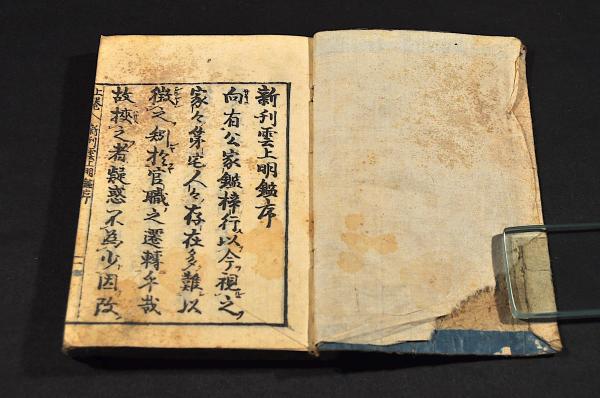 新刊雲上明鑑序
向有公家鑑梓行以今視之
家々第宅人々存在多難以
徴之矧於官職之遷轉乎哉
故挾之者疑惑不為少因改
上巻 新刊雲上明鑑序